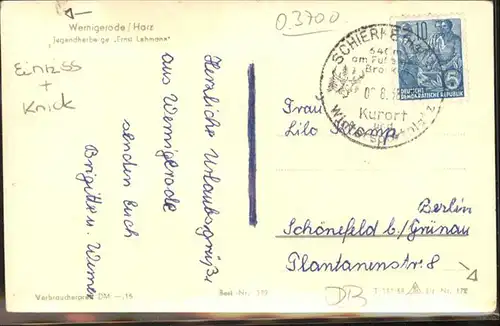 Wernigerode / Harz
Jugendherberge "Ernst Lehmann"
Einriss
+
Knick
Herzliche Urlaubsgrüße
aus Wernigerode
senden Euch
Brigitte u. Werner
Verbraucherpreis DM —.15
Best.-Nr.
0.3700
SCHIERKE
640 m
am Fuße
Kurort
10
5
DEUTSCHE
DEMOKRATISCHE REPUBLIK
Frau
Lilo
Berlin
Schönefeld b/Grünau
Plantanenstr. 8